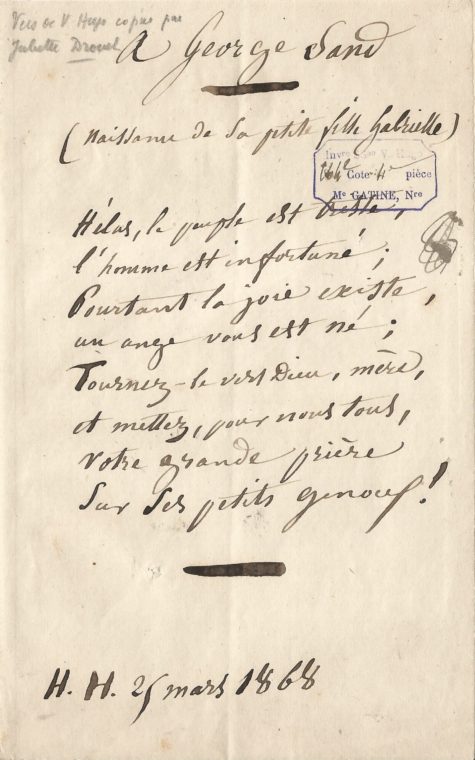 Vers de V. Hugo copiés par
Juliette Drouet
A George Sand
(naissance de sa ptite fille Gabrielle)
Invre
Cote 4e pièce
Me GATINE, Nre
Hélas, le peuple est triste,
l'homme est infortuné ;
Pourtant la joie existe,
un ange vous est né ;
Tournez-le vers Dieu, mère,
et mettez, pour nous tous,
votre grande prière
Sur Ses petits genoux !
H. H. 25 mars 1868